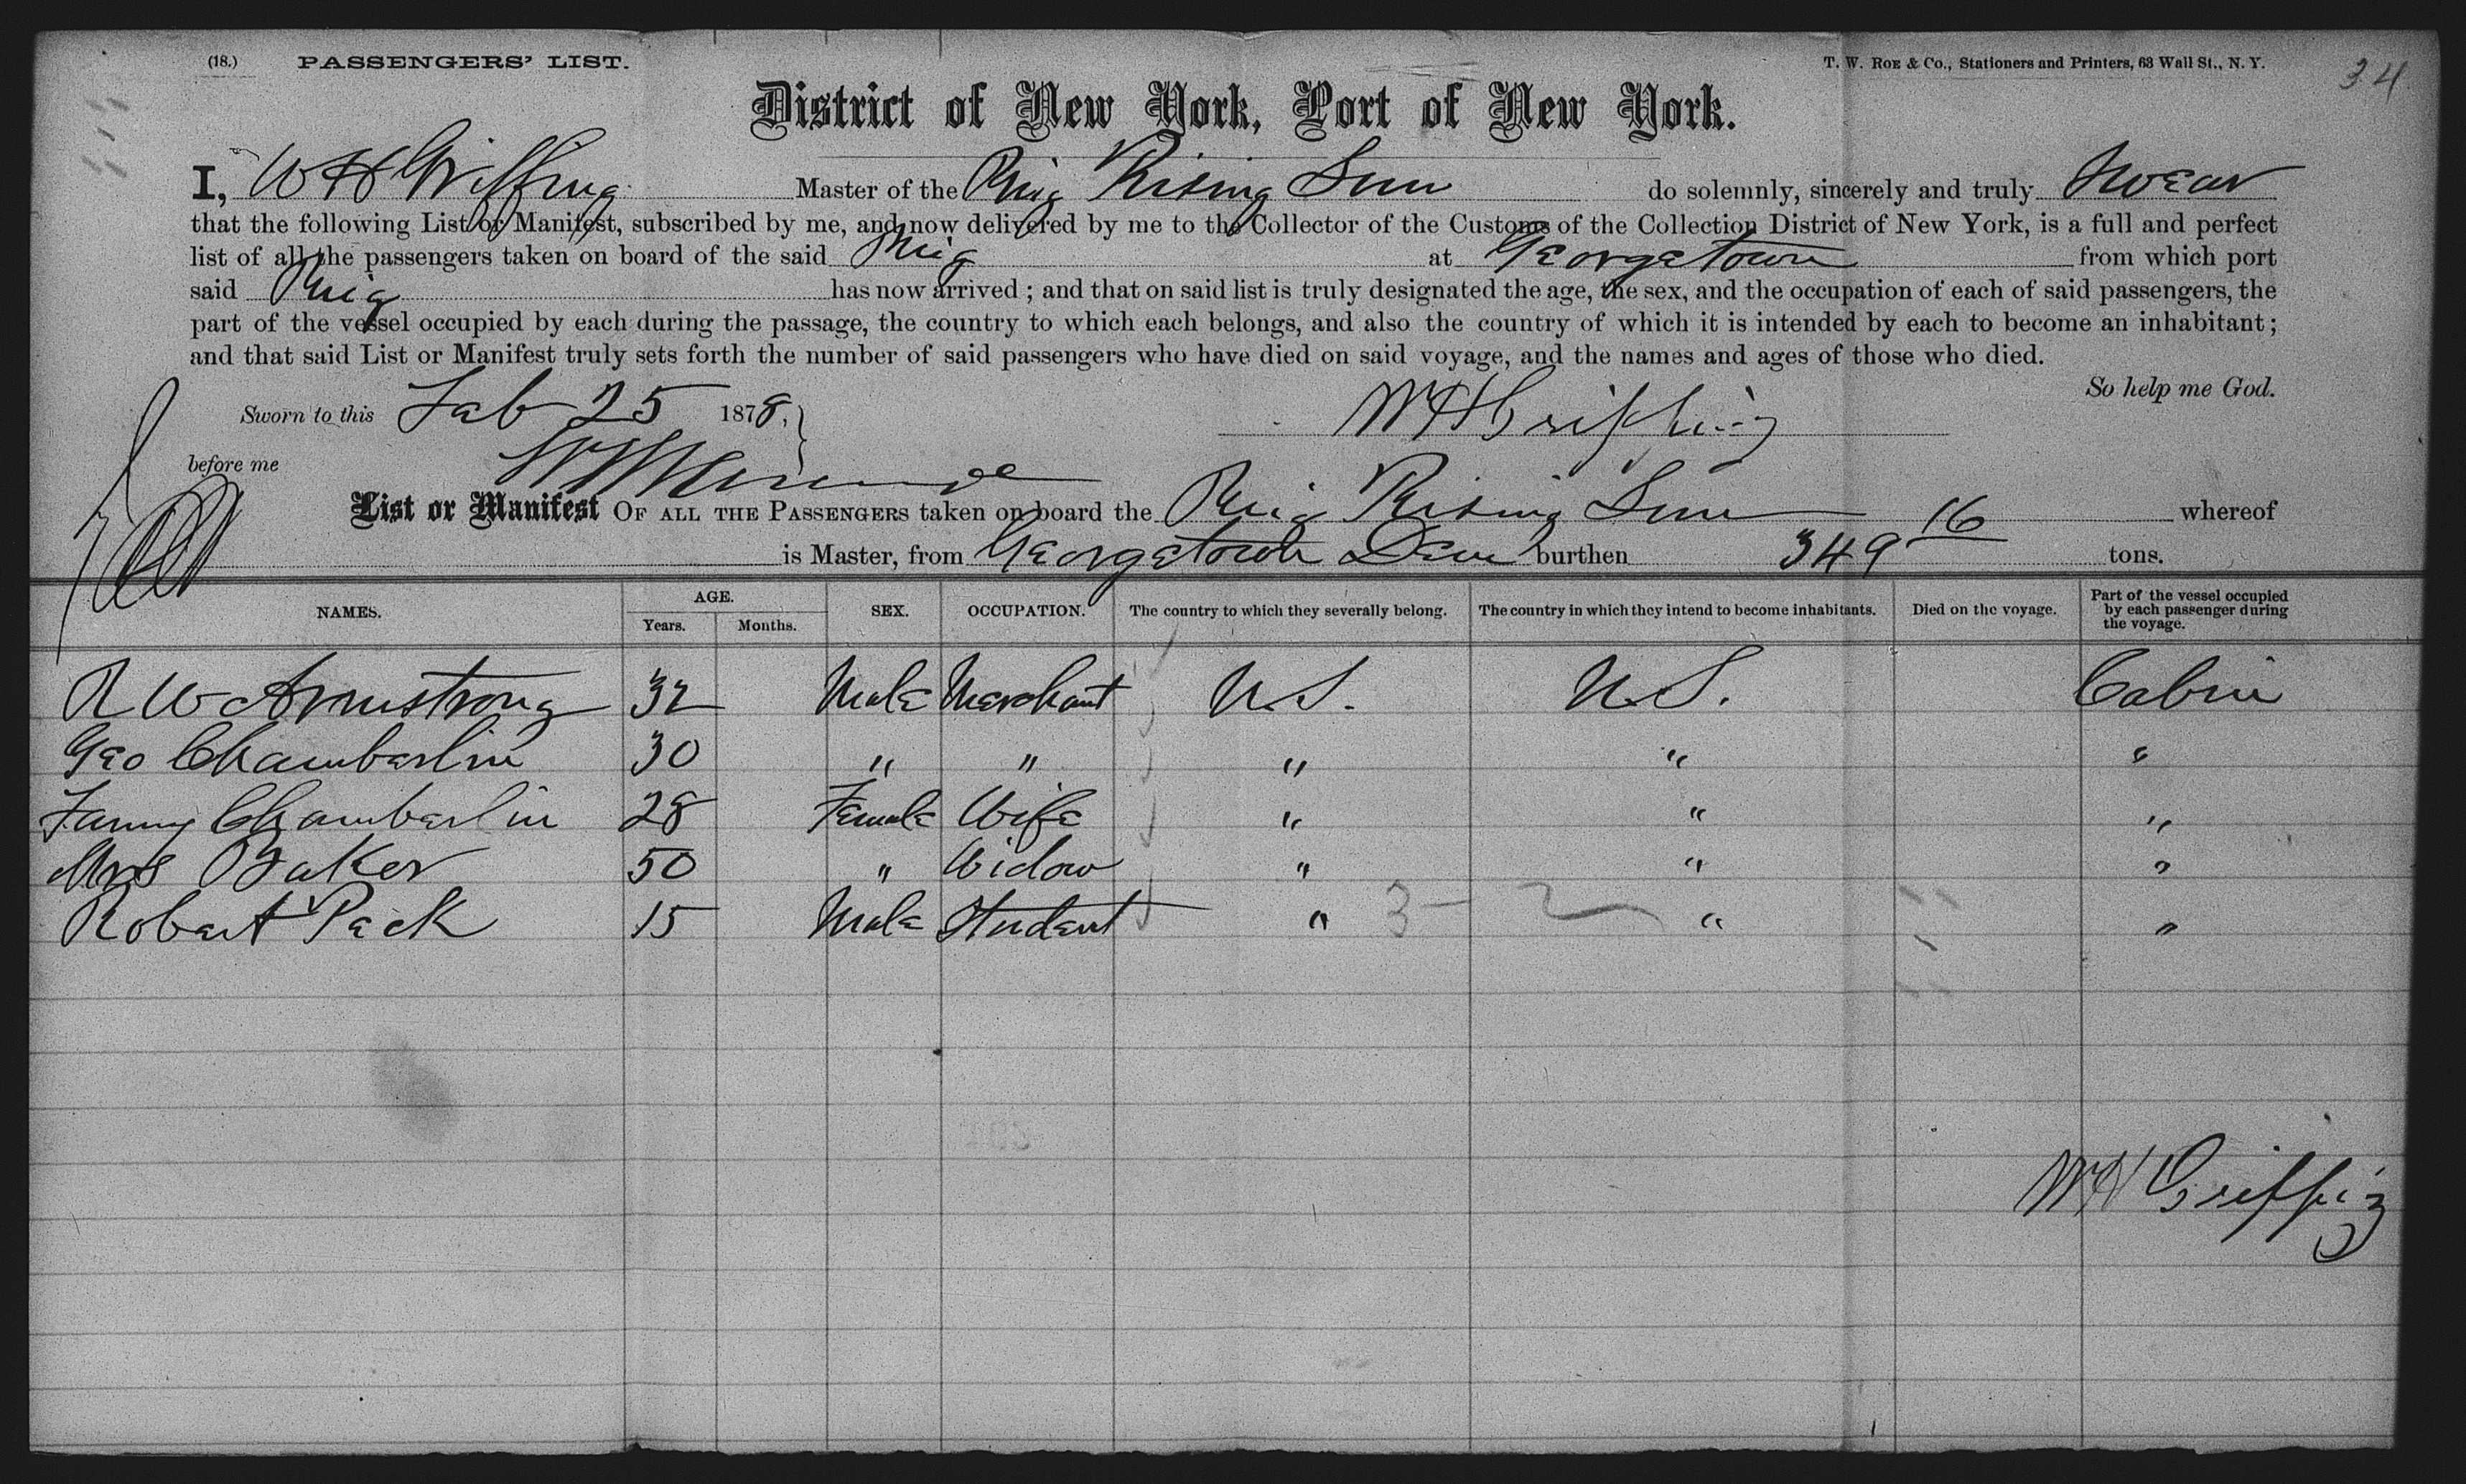 (18.) PASSENGERS' LIST. T. W. ROE & Co., Stationers and Printers, 63 Wall St., N. Y. 34
District of New York, Port of New York.
I, W H Griffing Master of the Brig Rising Sun do solemnly, sincerely and truly Swear
that the following List or Manifest, subscribed by me, and now delivered by me to the Collector of the Customs of the Collection District of New York, is a full and perfect
list of all the passengers taken on board of the said Brig at Georgetown from which port
said Brig has now arrived; and that on said list is truly designated the age, the sex, and the occupation of each of said passengers, the
part of the vessel occupied by each during the passage, the country to which each belongs, and also the country of which it is intended by each to become an inhabitant;
and that said List or Manifest truly sets forth the number of said passengers who have died on said voyage, and the names and ages of those who died.
So help me God.
Sworn to this Feb 25 1878, W H Griffing
before me
List or Manifest OF ALL THE PASSENGERS taken on board the Brig Rising Sun whereof
is Master, from Georgetown Dem burthen 349 16 tons.
NAMES. AGE. Years. Months. SEX. OCCUPATION. The country to which they severally belong. The country in which they intend to become inhabitants. Died on the voyage. Part of the vessel occupied by each passenger during the voyage.
R W Armstrong 32 Male Merchant U.S. U.S. Cabin
Geo Chamberlin 30 " " " " "
Fanny Chamberlin 28 Female Wife " " "
Mrs Baker 50 " Widow " " "
Robert Peck 15 Male Student " 3 2 " "
W H Griffing